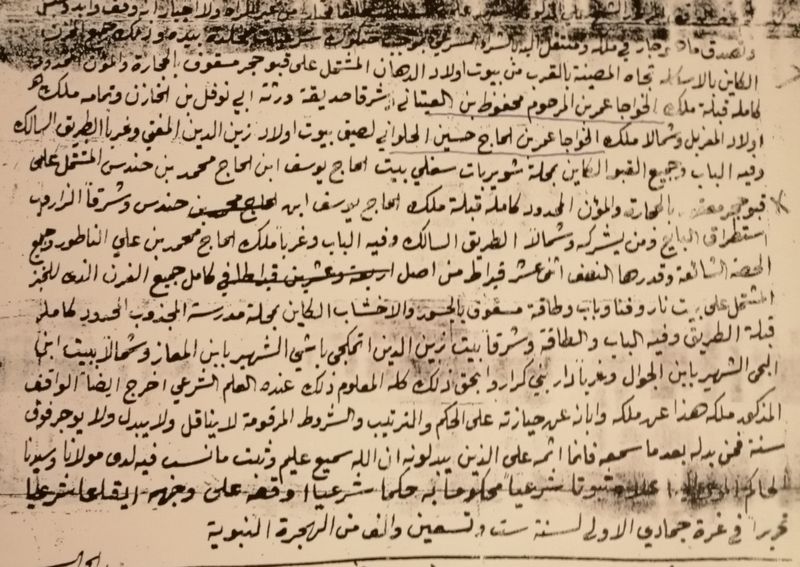 وتصدق ما هو جار في ملكه ومنتقل اليه بالشراء الشرعي بموجب
الكاين بالاسكله تجاه المصبنة بالقرب من بيوت اولاد الدهان المشتمل على قبو حجر مسقوف بالحجارة والمؤن المحدود
كامله قبلة ملك الخواجا عمر بن المرحوم محفوظ بن العيتاني وشرقا حديقة ورثة ابي نوفل بن الخازن وتمامه ملك
اولاد المغربل وشمالا ملك الخواجا عمر بن الحاج حسين الحلواني لصيق بيوت اولاد زين الدين المفتي وغربا الطريق السالك
وفيه الباب وجميع القبو الكاين بمحلة شويربات سفلي بيت الحاج يوسف ابن الحاج محمد بن حندس المشتمل على
قبو حجر معقود بالحجارة والمؤن المحدود كاملة قبلة ملك الحاج يوسف ابن الحاج محمد بن حندس وشرقا الزاروب
استطراق البايع ومن يشركه وشمالا الطريق السالك وفيه الباب وغربا ملك الحاج محمد بن علي الناطور وجميع
الحصة الشائعة وقدرها النصف اثني عشر قيراط من اصل اربعة وعشرين قيراطا في كامل جميع الفرن الذي للخبز
المشتمل على بيت نار وفنا وباب وطاقة مسقوف بالجسور والاخشاب الكاين بمحلة مدرسة المجذوب المحدود كاملا
قبلة الطريق وفيه الباب والطاقة وشرقا بيت زين الدين اتمكجي باشي الشهير بابن المعاز وشمالا بيت ابن
الشهير بابن الجوال وغربا دار بني كرار وا بحق ذلك كله المعلوم ذلك عنده العلم الشرعي اخرج ايضا الواقف
المذكور ملكه هذا عن ملكه وابانه عن حيازته على الحكم والترتيب والشروط المرقومة لا يناقل ولا يبدل ولا يوجر فوق
سنة فمن بدله بعدما سمعه فانما اثمه على الذين يبدلونه ان الله سميع عليم وثبت ما نسب فيه لدى مولانا وسيدنا
الحاكم اعلاه ثبوتا شرعيا محكوما به حكما شرعيا اوقعه على وجهه ايقاعا شرعيا
تحريرا في غرة جمادي الاولى لسنة ست وتسعين والف من الهجرة النبوية